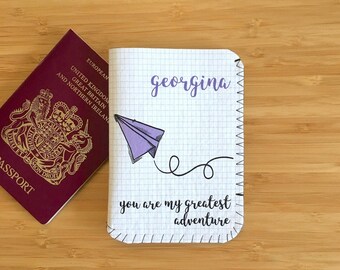 EUROPEAN
UNITED KINGDOM OF
GREAT BRITAIN
AND NORTHERN IRELAND
PASSPORT
georgina
you are my greatest
adventure